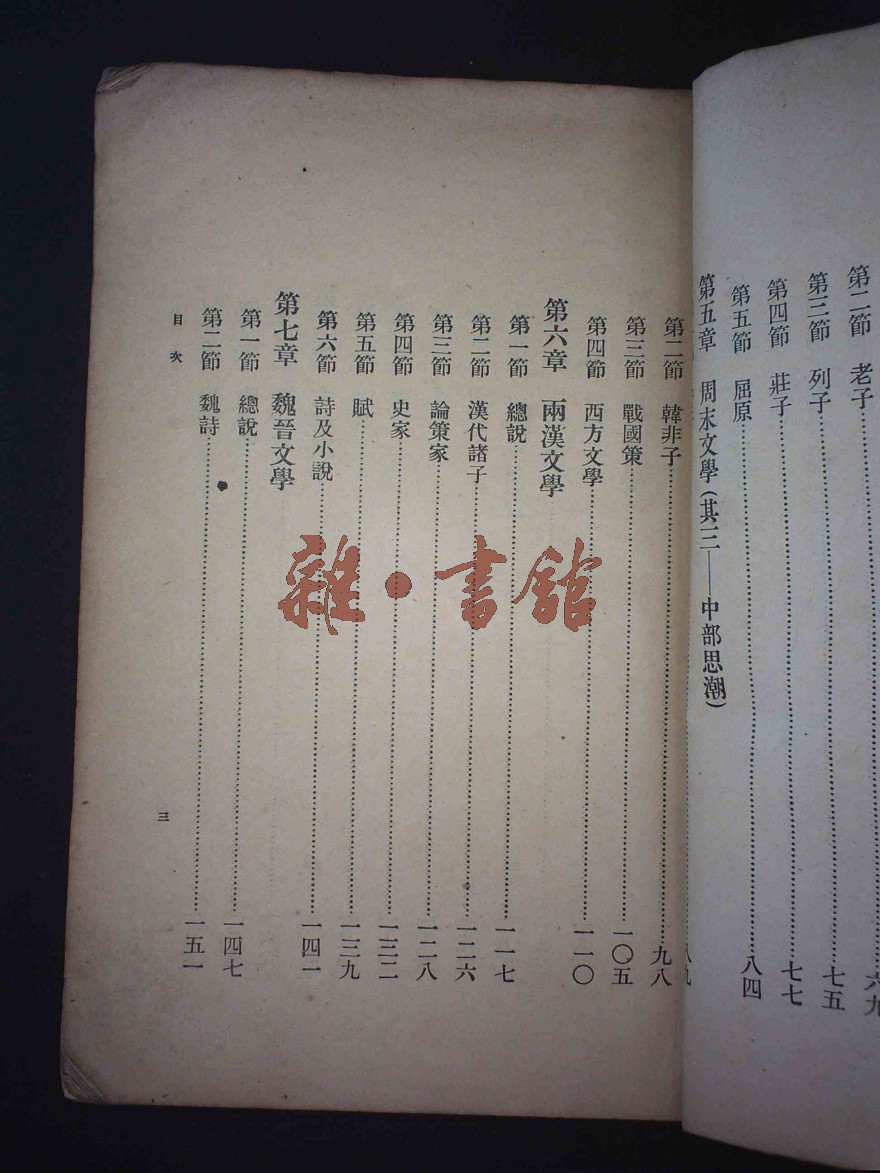 第二節　老子……六九
第三節　列子……七五
第四節　莊子……七七
第五節　屈原……八四
第五章　周末文學（其三——中部思潮）
八九
第二節　韓非子……九八
第三節　戰國策……一〇五
第四節　西方文學……一一〇
第六章　兩漢文學
第一節　總說……一一七
第二節　漢代諸子……一二六
第三節　論策家……一二八
第四節　史家……一三二
第五節　賦……一三九
第六節　詩及小說……一四一
第七章　魏晉文學
第一節　總說……一四七
第二節　魏詩……一五一
目次
三
雜·書館